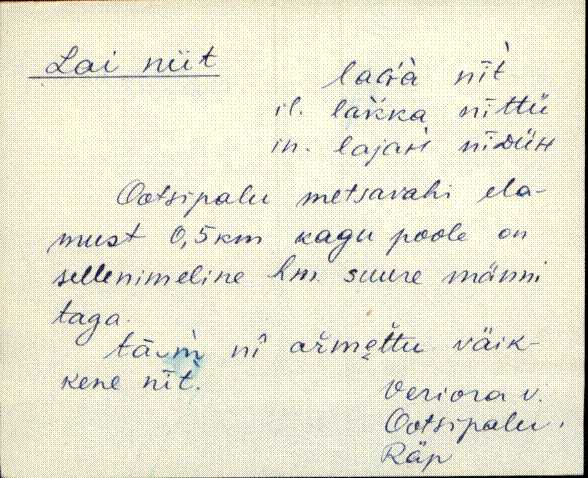 Lai niit
lai̬à nīt̀
il. lai̬kka nīttü
in. lajaH nīDüH
Ootsipalu metsavahi ela-
must 0,5 km kagu poole on
sellenimeline hm. suure männi
taga.
tä̬m̀ nī ařmẹttu väik-
kene nīt.
Veriora v.
Ootsipalu.
Räp